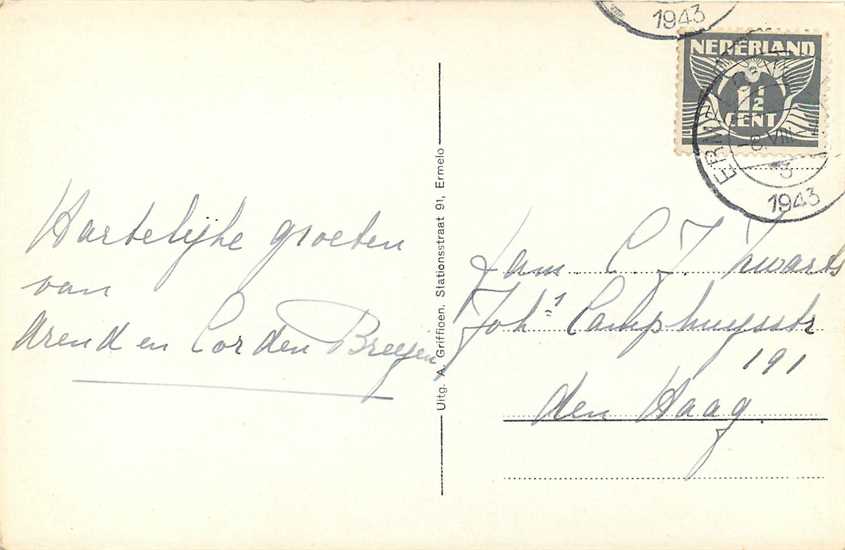 1943
NEDERLAND
1 1/2
CENT
ERM
VIII
3
1943
Hartelijke groeten
van
Arend en Cor den Breejen
Uitg. A. Grifficen, Stationsstraat 91, Ermelo
Fam. C. J. Zwarts
Joh.s Camphuysstr
191
den Haag.